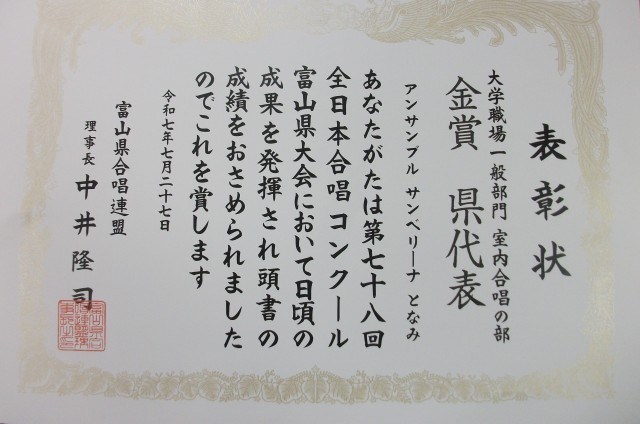 表彰状
大学職場一般部門 室内合唱の部
金賞 県代表
アンサンブル サンベリーナ となみ
あなたがたは第七十八回
全日本合唱コンクール
富山県大会において日頃の
成果を発揮され頭書の
成績をおさめられました
のでこれを賞します
令和七年七月二十七日
富山県合唱連盟
理事長 中井隆司